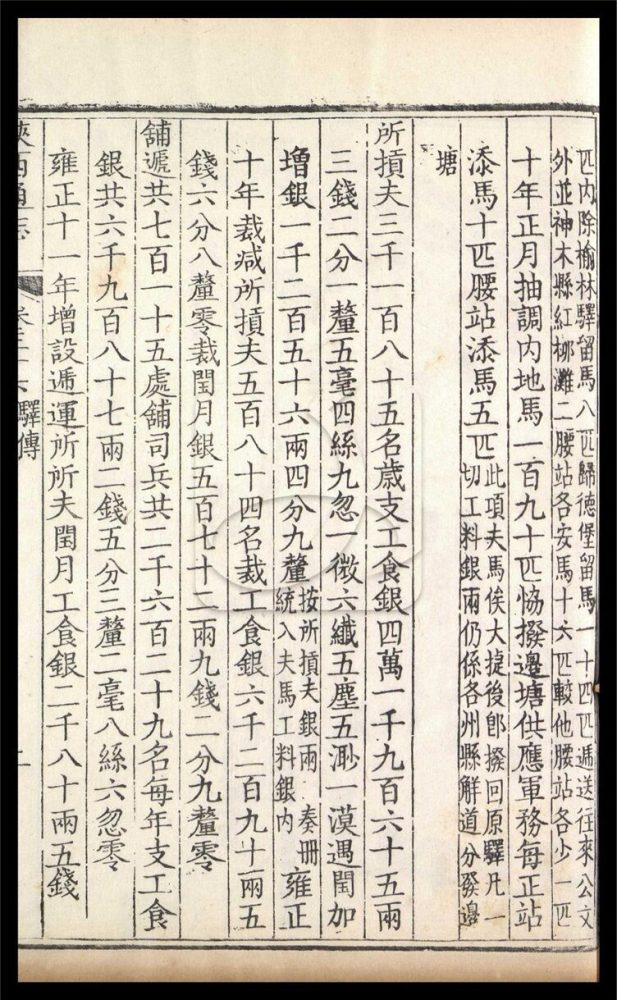 匹内除榆林驛留馬八匹歸德堡留馬一十四匹遞送往來公文
外並神木縣紅柳灘二腰站各安馬十六匹較他腰站各少一匹
十年正月抽調内地馬一百九十匹恊撥邊塘供應軍務每正站
添馬十匹腰站添馬五匹此項夫馬俟大㨗後卽撥回原驛凡一
切工料銀兩仍係各州縣解道分發邊
塘
所損夫三千一百八十五名歲支工食銀四萬一千九百六十五兩
三錢二分一釐五毫四絲九忽一微六纖五塵五渺一漠遇閏加
增銀一千二百五十六兩四分九釐按所損夫銀兩 奏册
統入夫馬工料銀内雍正
十年裁减所損夫五百八十四名裁工食銀六千二百九十一兩五
錢六分八釐零裁閏月銀五百七十二兩九錢二分九釐零
舖遞共七百一十五處舖司兵共二千六百二十九名每年支工食
銀共六千九百八十七兩二錢五分三釐二毫八絲六忽零
雍正十一年增設遞運所所夫閏月工食銀二千八十兩五錢
陜西通志 卷三十六 驛傳